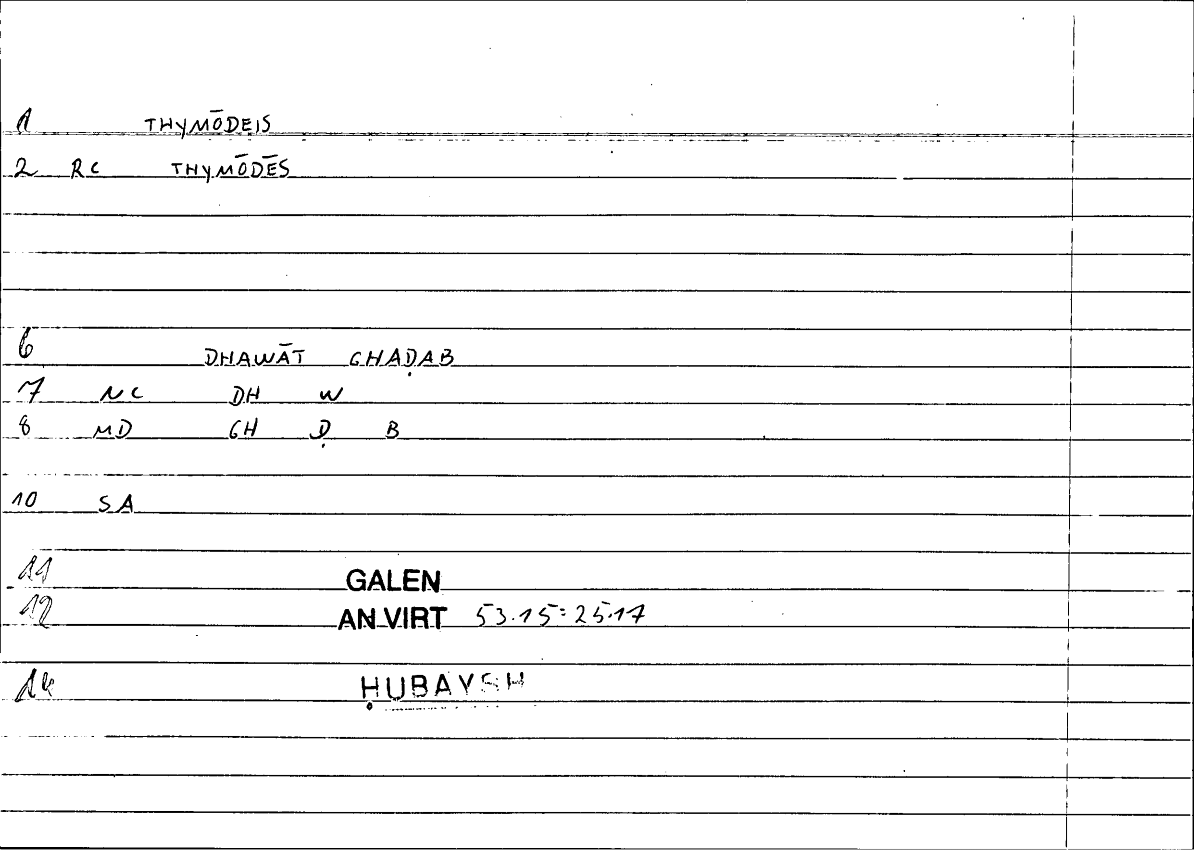 1 THYMŌDEIS
2 RC THYMŌDĒS
6 DHAWĀT GHAḌAB
7 NC DH W
8 MD GH Ḍ B
10 SA
11 GALEN
12 AN VIRT 53.15:25.17
14 ḤUBAYSH